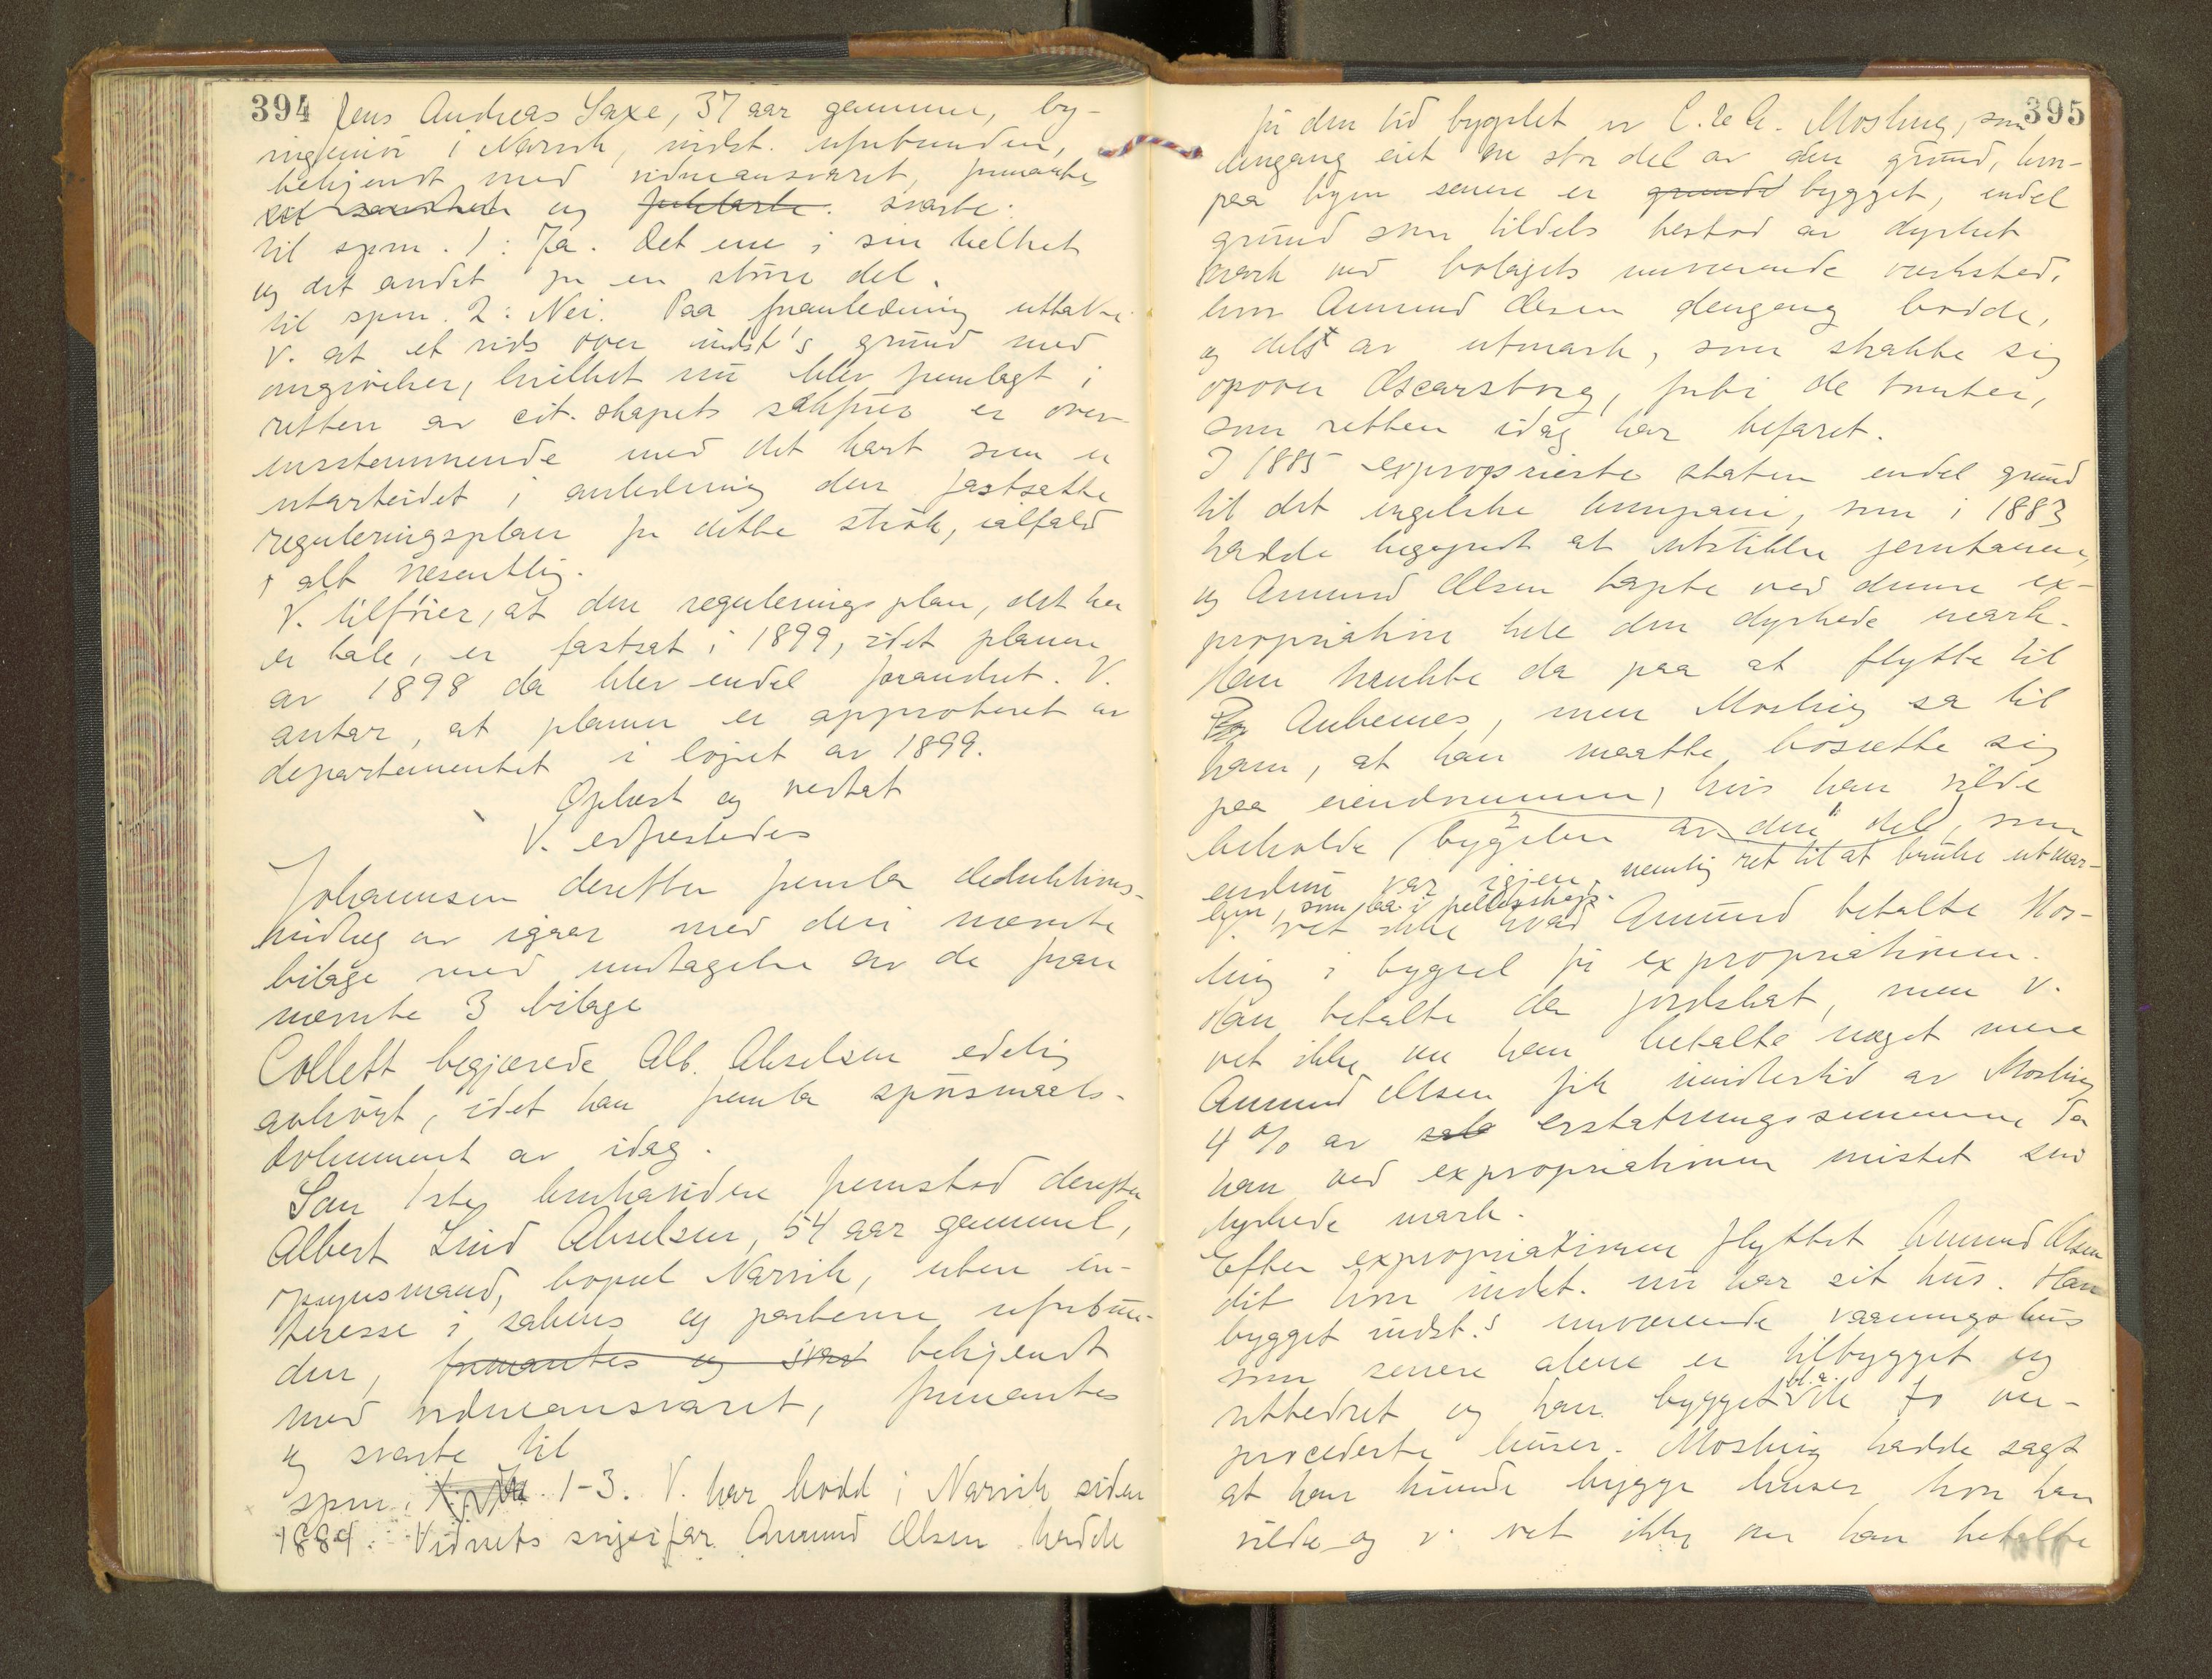 394
Jens Andreas Saxe, 37 aar gammel, by-
ingeniør i Narvik, indst. uforbunden,
bekjendt med vidneansvaret, formantes
og svarte:
til spm. 1: Ja. Det ene i sin helhet
og det andet for en større del.
til spm. 2: Nei. Paa foranledning uttaler
V. at et rids over indst's grund med
omgivelser, hvilket nu blev fremlagt i
retten av cit. skapets sakfører er over-
ensstemmende med det kart som er
utarbeidet i anledning den fastsatte
reguleringsplan for dette strøk, ialfald
i alt væsentlig.
V. tilføier, at den reguleringsplan, det her
er tale, er fastsat i 1899, idet planen
av 1898 da blev endel forandret. V.
antar, at planen er approberet av
departementet i løpet av 1899.
Oplæst og vedtat
V. edfæstedes
Johannsen derefter fremla deduktions-
indlæg av igaar med deri nævnte
bilage med undtagelse av de foran
nævnte 3 bilage
Collett begjærede Alb. Akselsen edelig
avhørt, idet han fremla spørsmaals-
dokument av idag.
Som 1ste bemhavidne fremstod derefter
Albert Lind Akselsen, 54 aar gammel,
opsynsmand, bopæl Narvik, uten in-
teresse i sakens og parterne uforbun-
den, formantes og svar bekjendt
med vidneansvaret, formantes
og svarte til
spm. 1-3. V. har bodd i Narvik siden
1884. Vidnets svigerfar Amund Olsen hadde
395
før den tid bygslet av C. & A. Mosling, som
dengang eiet en stor del av den grund, hvor-
paa byen senere er grundt bygget, endel
grund som tildels bestod av dyrket
mark ved bolagets nuværende verksted,
hvor Amund Olsen dengang bodde,
og dels av utmark, som strakte sig
opover Oscarsborg, forbi de tomter,
som retten idag har befaret.
I 1885 exproprierte staten endel grund
til det engelske kompani, som i 1883
hadde begyndt at utstikke jernbanen,
og Amund Olsen tapte ved denne ex-
propriation hele den dyrkede mark.
Han tænkte da paa at flytte til
Ankenes, men Mosling sa til
ham, at han maatte bosætte sig
paa eiendommen, hvis han vilde
beholde bygselen av den del, som
endnu var igjen, nemlig ret til at bruke utmar-
ken, som laa i fellesskap.
V. vet ikke hvad Amund betalte Mos-
ling i bygsel før expropriationen.
Han betalte da jordskat, men V.
vet ikke om han betalte noget mere
Amund Olsen fik imidlertid av Mosling
4 % av erstatningssummen, da
han ved expropriationen mistet sin
dyrkede mark.
Efter expropriationen flyttet Amund Olsen
dit hvor indst. nu har sit hus. Han
bygget indst.s nuværende vaaningshus
som senere alene er tilbygget og
utbedret og han bygget bl.a. de to om-
procederte huser. Mosling hadde sagt
at han kunde bygge huser hvor han
vilde og v. vet ikke om han betalte